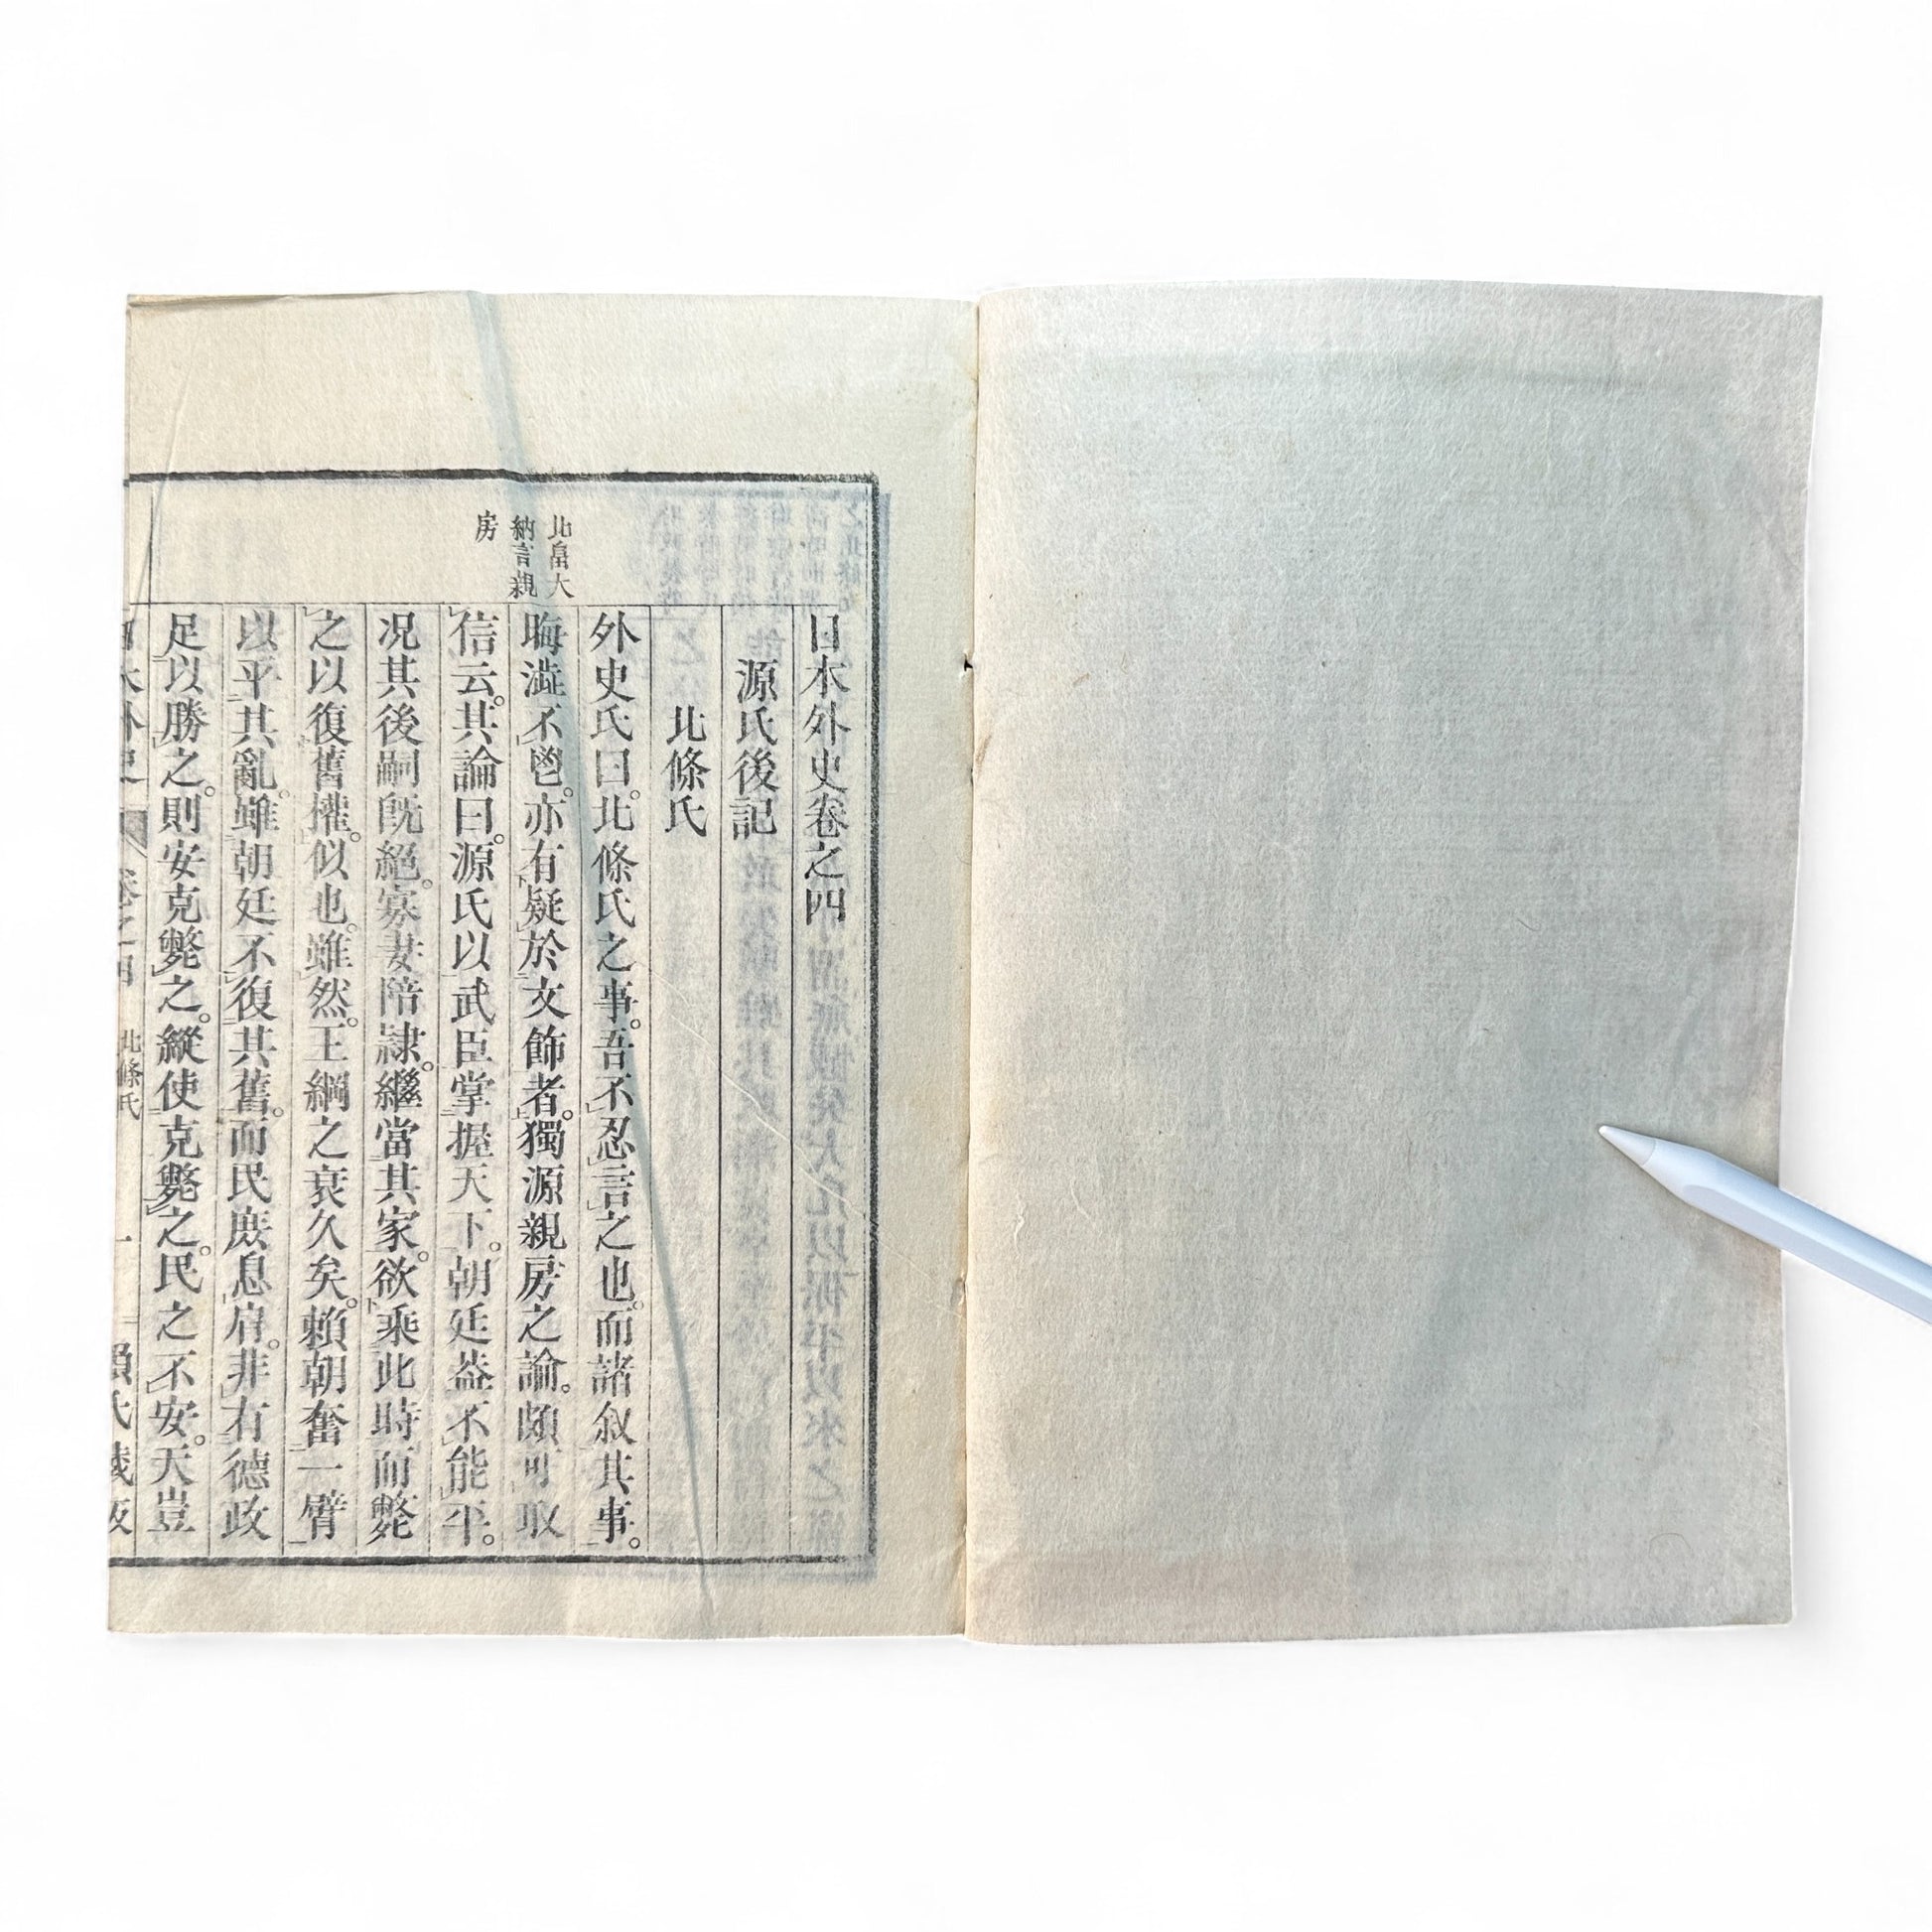 日本外史卷之四
源氏後記
北條氏
北畠大
納言親
房
外史氏曰。北條氏之事。吾不忍言之也。而諸叙其事。
晦澁不鬯。亦有疑於文飾者。獨源親房之論。頗可取
信云。其論曰。源氏以武臣掌握天下。朝廷葢不能平。
况其後嗣旣絕。寡妻陪隷。繼當其家。欲乘此時而斃
之以復舊權。似也。雖然。王綱之衰久矣。賴朝奮一臂
以平其亂。雖朝廷不復其舊。而民庶息肩。非有德政
足以勝之。則安克斃之。縱使克斃之。民之不安。天豈
日本外史 卷之四 北條氏 一 賴氏藏版